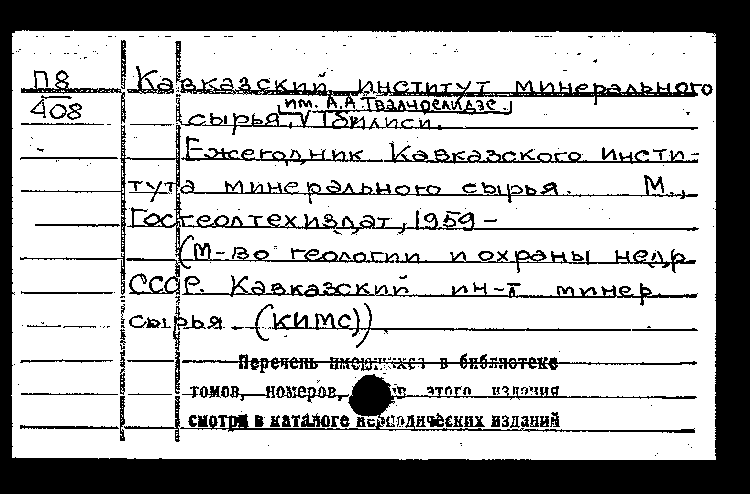 П8 Кавказский институт минерального
408 им. А.А.Твалчрелидзе
сырья, Тбилиси.
Ежегодник Кавказского инсти-
тута минерального сырья. М.,
Госгеолтехиздат, 1959 -
(М-во геологии и охраны недр
СССР. Кавказский ин-т минер.
сырья (КИМС)).
Перечень имеющихся в библиотеке
томов, номеров, этого издания
смотри в каталоге периодических изданий